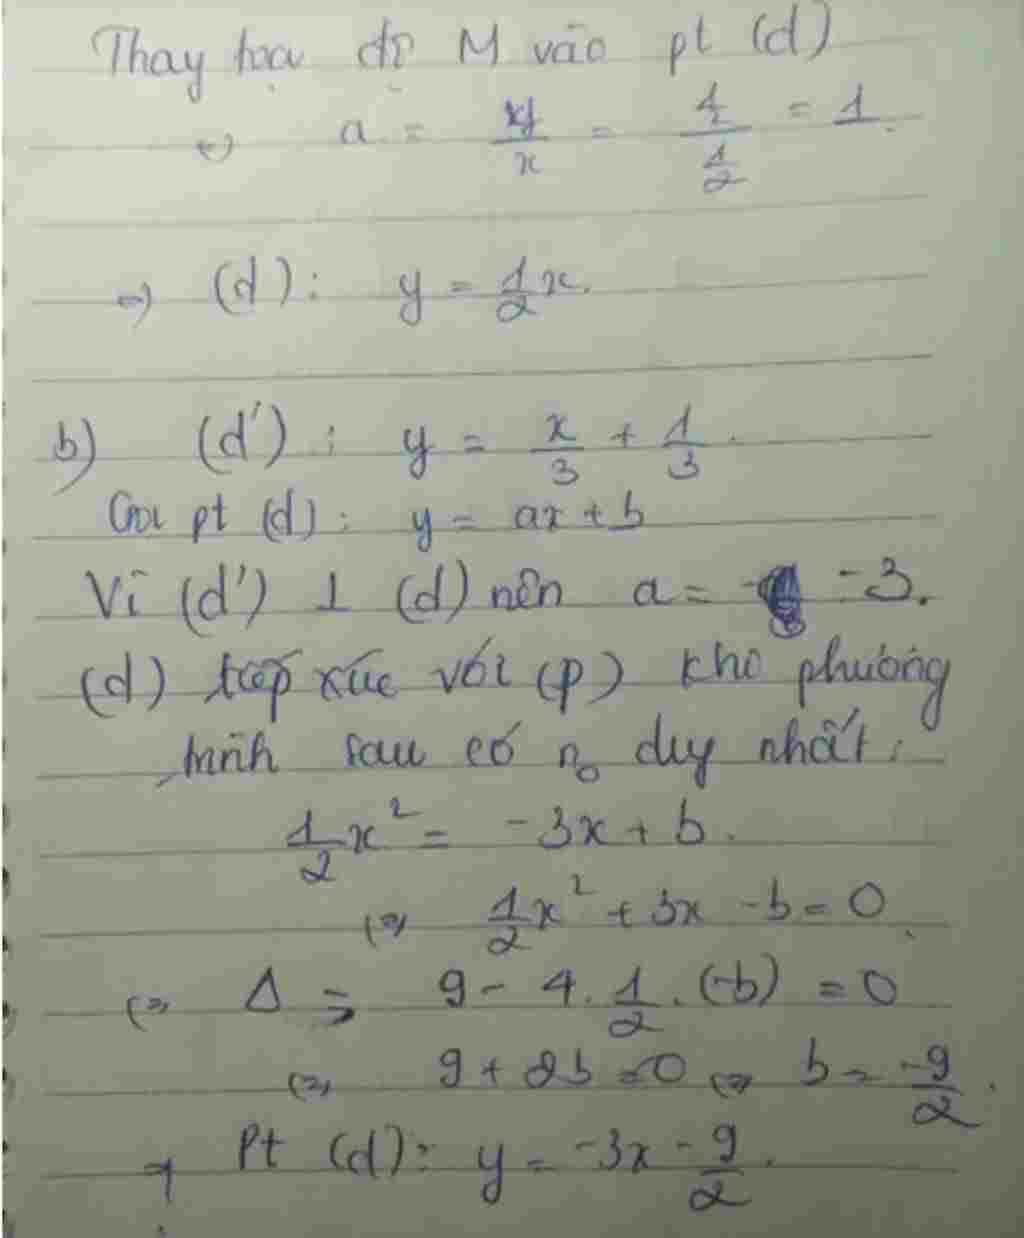 Thay toạ độ M vào pt (d)
(=) a = y/x = 1/2 / 1/2 = 1.
=) (d): y = 1/2 x.
b) (d') : y = x/3 + 1/3.
Gọi pt (d): y = ax + b
Vì (d') ⊥ (d) nên a = -3.
(d) tiếp xúc với (P) khi phương
trình sau có n₀ duy nhất:
1/2 x² = -3x + b.
(=) 1/2 x² + 3x - b = 0.
(=) Δ = 9 - 4. 1/2 . (-b) = 0
(=) 9 + 2b = 0 (=) b = -9/2.
=) Pt (d): y = -3x - 9/2.